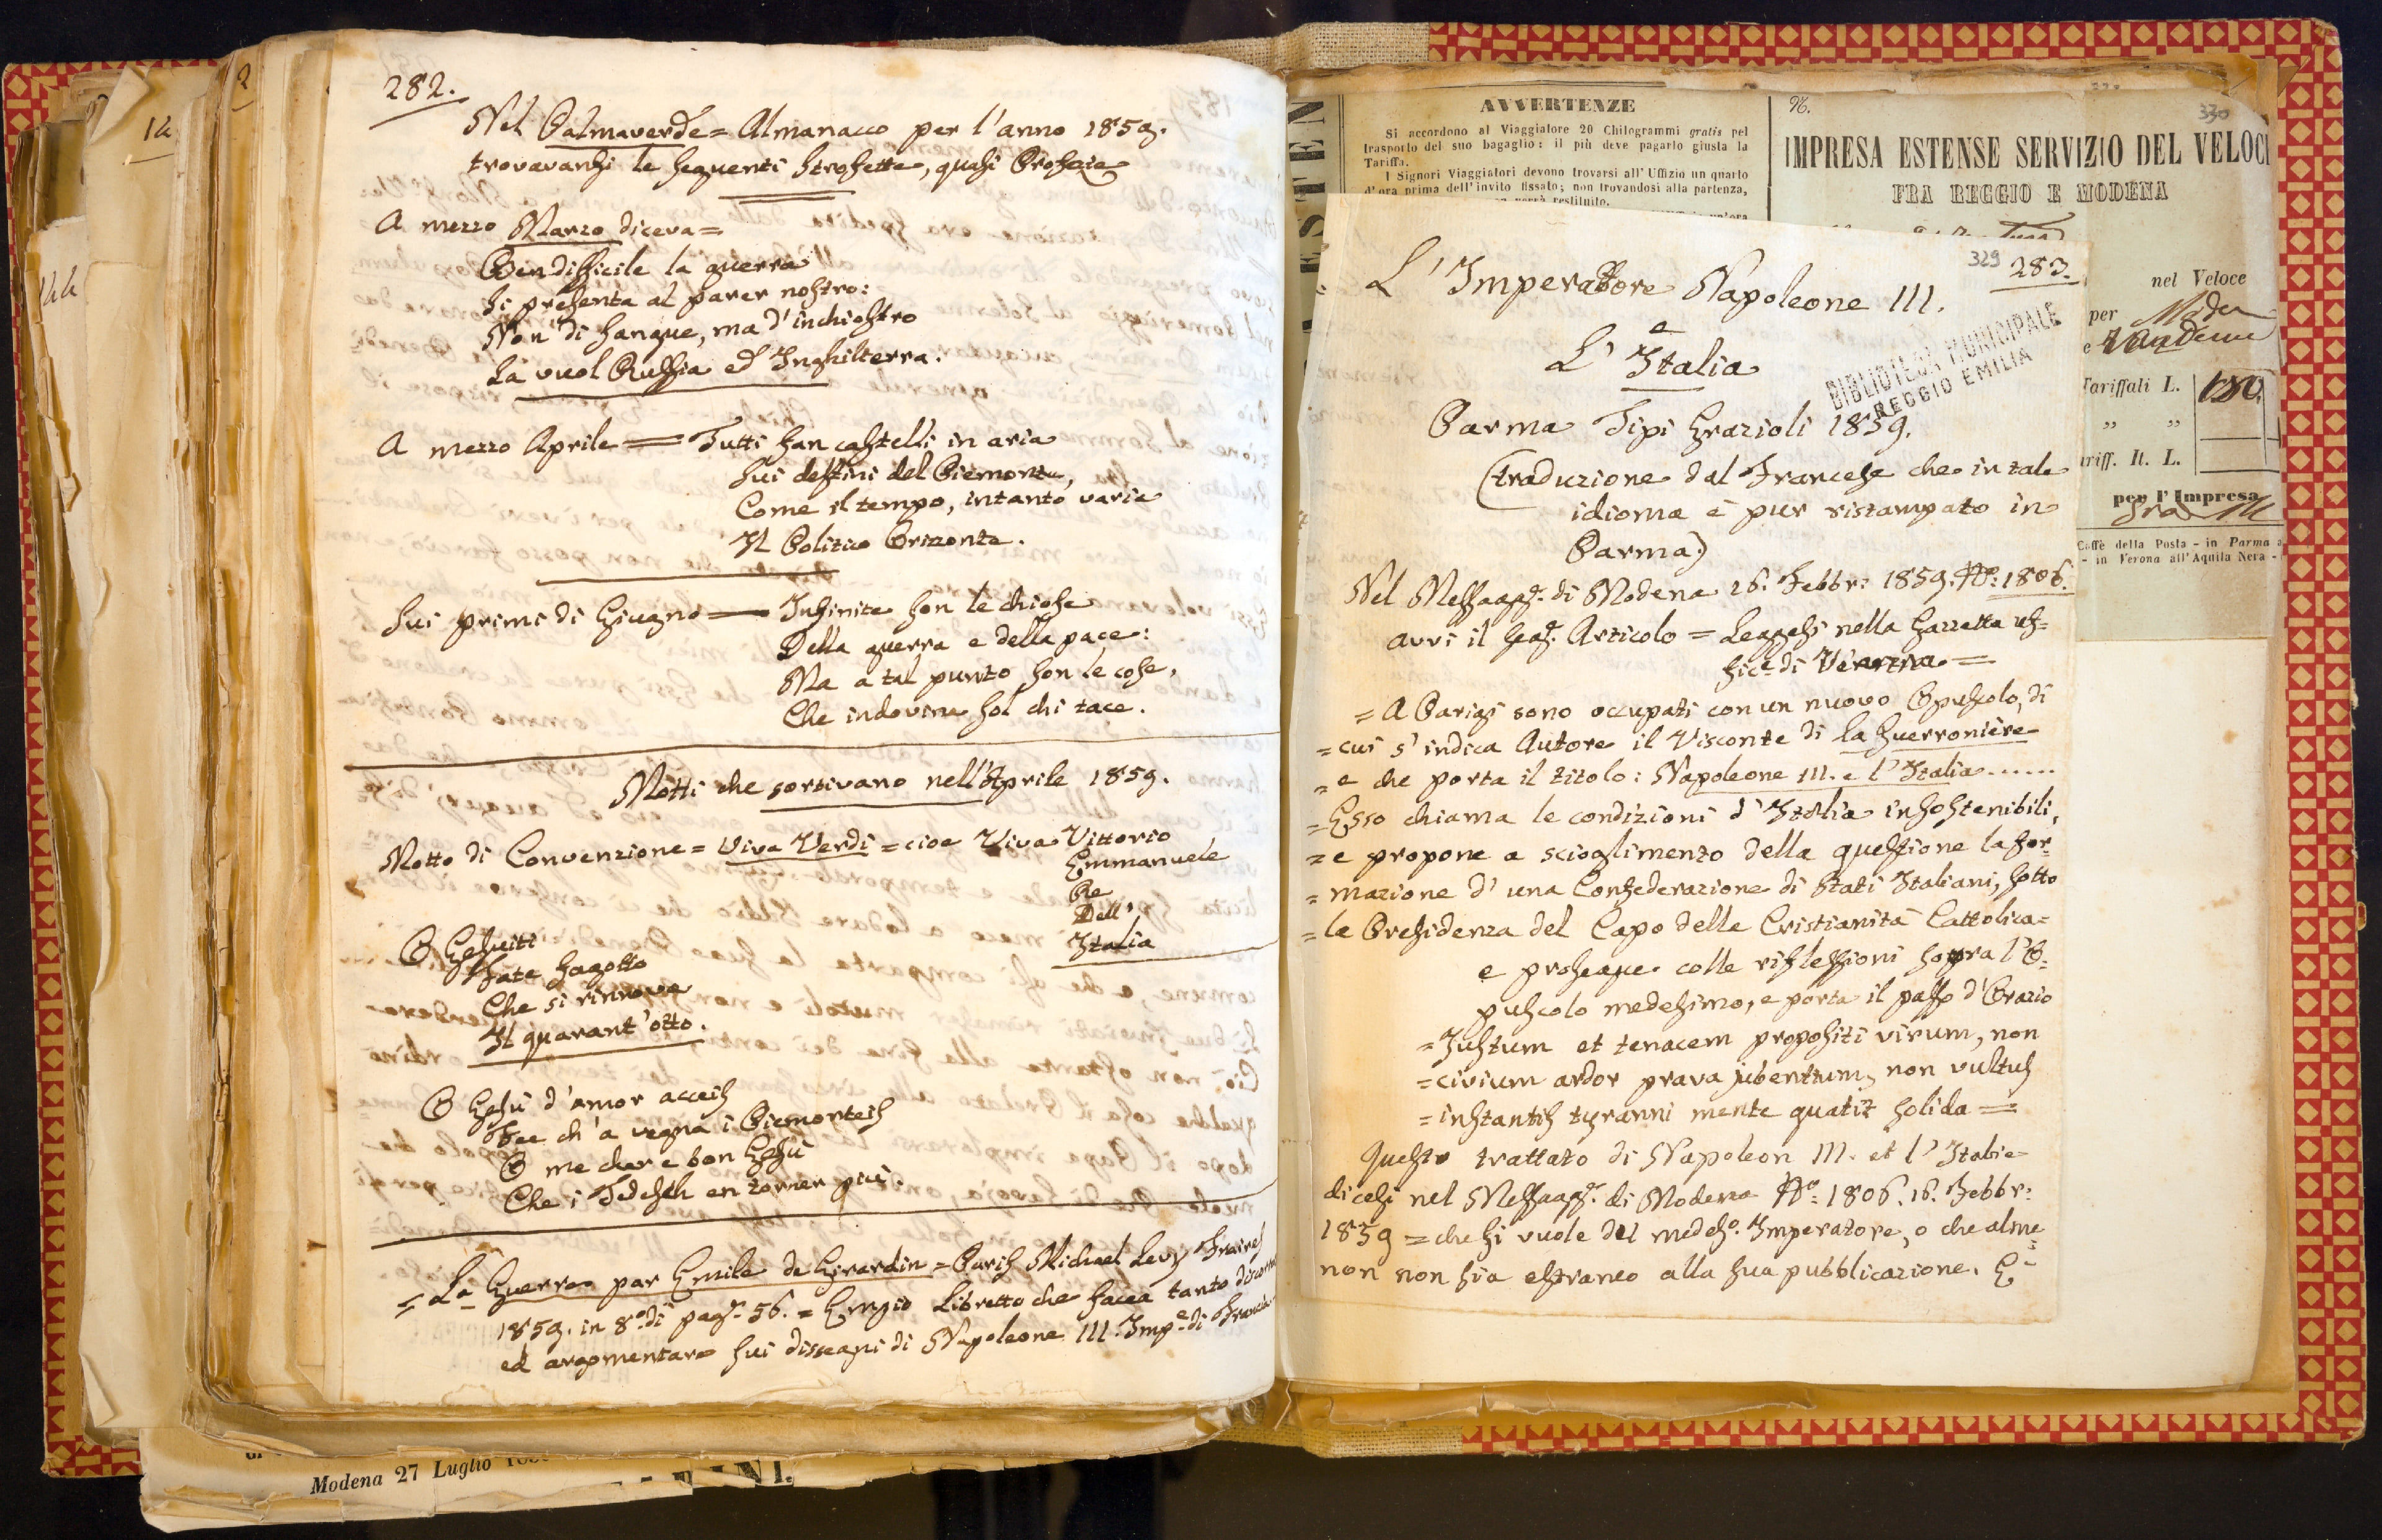 282.
Nel Palmaverde = Almanacco per l'anno 1859.
trovavansi le seguenti strofette, quasi Profezie
A mezzo Marzo diceva =
Ben difficile la guerra
Si presenta al parer nostro:
Non di sangue, ma d'inchiostro
La vuol Russia ed Inghilterra.
A mezzo Aprile = Tutti fan castelli in aria
Sui destini del Piemonte,
Come il tempo, intanto varia
Il Politico Orizonte.
Sui primi di Giugno = Infinite son le chiose
Della guerra e della pace:
Ma a tal punto son le cose,
Che indovina sol chi tace.
Motti che sortivano nell'Aprile 1859.
Motto di Convenzione = Viva Verdi = cioe Viva Vittorio
Emmanuele
Re
Dell'
Italia
O Gesuiti
Fate fagotto
Che si rinnova
Il quarant'otto.
O Gesù d'amor acceis
Fee ch'a vegna i Piemonteis
O me char e bon Gesù
Che i Tedesch en torner più.
= La Guerre par Emile de Girardin = Paris Michael Levy Fraires
1859. in 8º di pag. 56. = Empio Libretto che facea tanto
ed argomentare sui dissegni di Napoleone III. Impe. di Francia.
12
144
2
Modena 27 Luglio
AVVERTENZE
Si accordono al Viaggiatore 20 Chilogrammi gratis pel
trasporto del suo bagaglio: il più deve pagarlo giusta la
Tariffa.
I Signori Viaggiatori devono trovarsi all'Uffizio un quarto
d'ora prima dell'invito fissato; non trovandosi alla partenza,
verrà restituito.
ESTEN
96.
330
IMPRESA ESTENSE SERVIZIO DEL VELOCI
FRA REGGIO E MODENA
nel Veloce
per
Tariffali L.
" "
ariff. It. L.
per l'Impresa
Caffè della Posta - in Parma a
- in Verona all'Aquila Nera -
329 283.
L'Imperatore Napoleone III.
e
L'Italia
BIBLIOTECA MUNICIPALE
REGGIO EMILIA
Parma Tipi Grazioli 1859.
(traduzione dal Francese che in tale
idioma è pur ristampato in
Parma.)
Nel Messagg. di Modena 16. Febbr: 1859. Nº: 1806.
avvi il seg. Articolo = Leggesi nella Gazzetta uf=
fice. di Vienna =
= A Parigi sono occupati con un nuovo Opuscolo, di
= cui s'indica Autore il Visconte di la Guerronière
= e che porta il titolo: Napoleone III. e l'Italia......
= Esso chiama le condizioni d'Italia insostenibili,
= e propone a scioglimento della questione la for=
= mazione d'una Confederazione di Stati Italiani, sotto
= la Presidenza del Capo della Cristianità Cattolica=
e prosegue colle riflessioni sopra l'O=
puscolo medesimo, e porta il passo d'Orazio
= Justum et tenacem propositi virum, non
= civium ardor prava jubenttum, non vultus
= instantis tyranni mente quatit solida =
Questo trattato di Napoleon III. et l'Italie
dicesi nel Messagg. di Modena Nº: 1806. 16. Febbr:
1859 = che si vuole del medeso. Imperatore, o che alme=
non non sia estraneo alla sua pubblicazione. E=